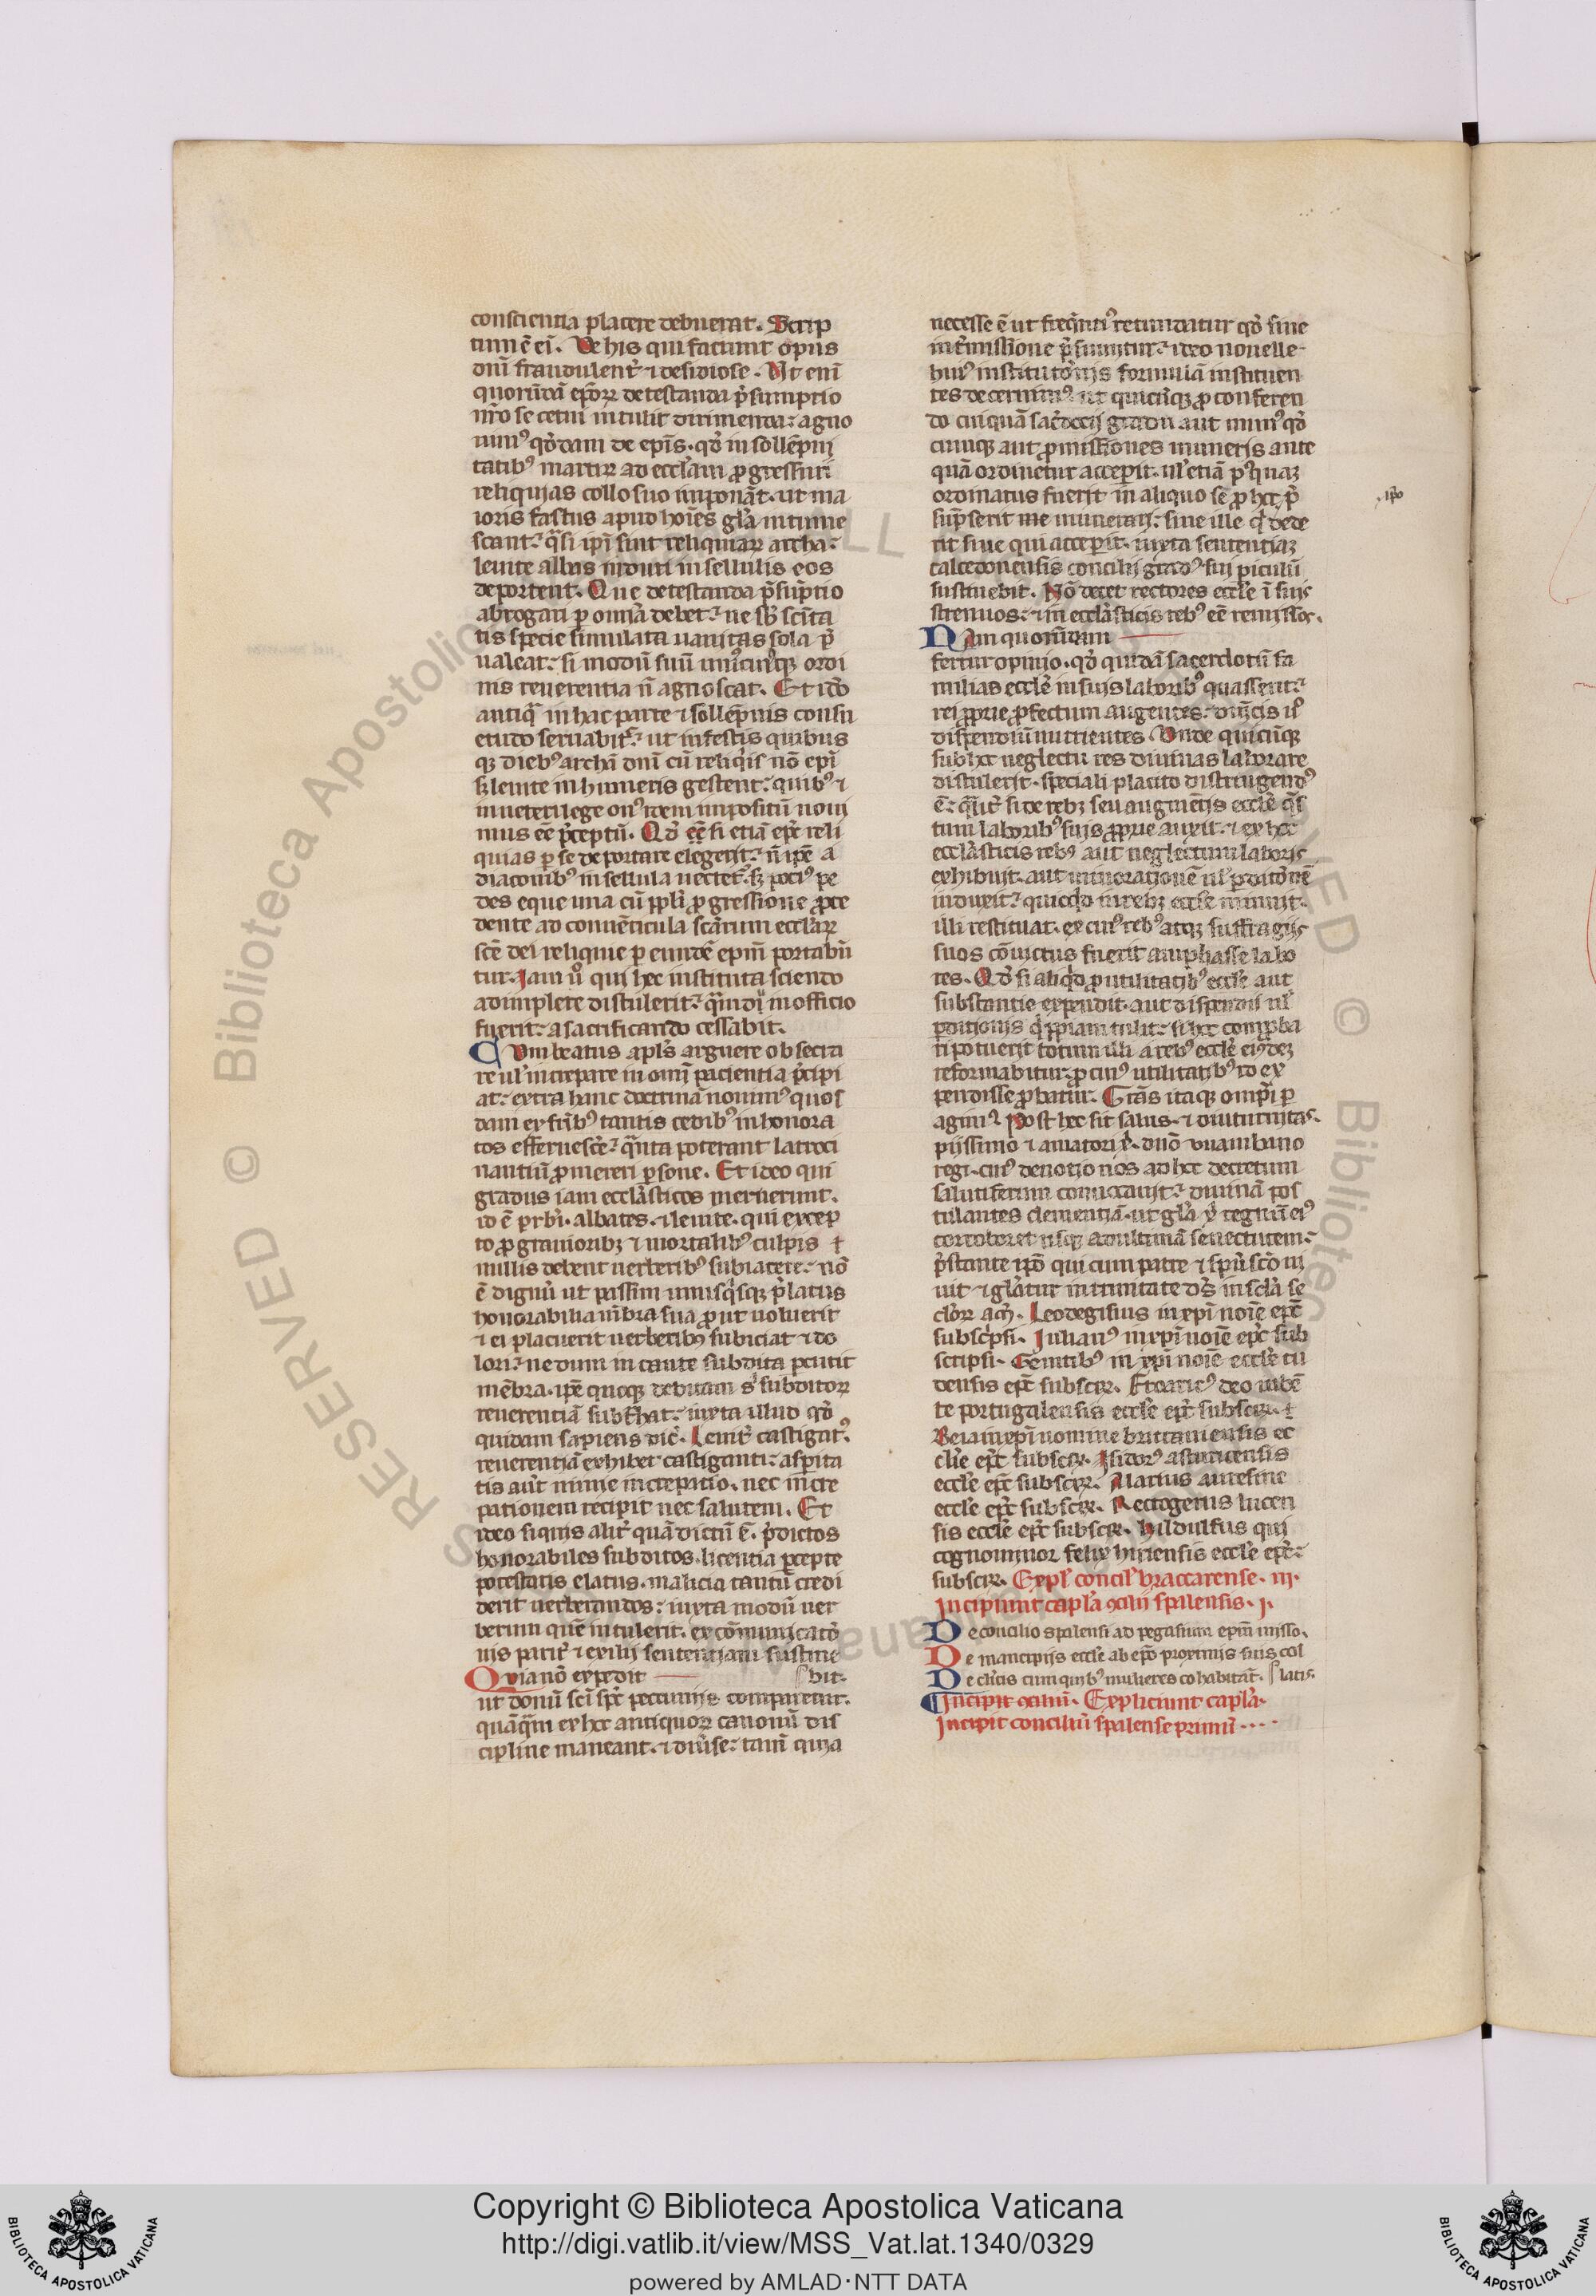 conscientia placere debuerat. Scrip
tum ē ei. Ve his qui faciunt opus
dnī fraudulent̄ ⁊ desidiose. Ut eni
quorūdā epōꝝ detestanda p̄sumptio
nr̄o se cetui intulit dirimenda: agno
uimꝰ qd̄dam de epīs. qd̄ in sollēpni
tatibꝰ martirꝝ ad eccl̄am ꝓgressuri
reliquias collo suo imponāt. ut ma
ioris fastus apud hoīes gl̄a intume
scant: q̄si ipī sint reliquiaꝝ archa:
leuite albis induti in sellulis eos
deportent. Que detestanda p̄sūptio
abrogari ꝑ omīa debet: ne sb̄ scīta
tis specie simulata uanitas sola p̄
ualeat: si modū suū unꝰcuiꝰqꝫ ordi
nis reuerentia n̄ agnoscat. Et idō
antiq̄ in hac parte ⁊ sollēpnis consu
etudo seruabit̄: ut in festis quibus
qꝫ diebꝰ archā dnī cū reliqͥis nō epī
sꝫ leuite in humeris gestent: quibꝰ ⁊
in ueteri lege onꝰ idem impositū noui
mus eē p̄ceptū. Qd̄ eē si etiā epc̄ reli
quias ꝑ se deportare elegerit: n̄ ipē a
diaconibꝰ in sellula uectet̄. sꝫ pociꝰ pe
des eque una cū ppl̄i ꝓgressione ꝓce
dente ad conuēticula scārum eccl̄aꝝ
scē dei reliquie ꝑ eundē epm̄ portabū
tur. Iam u̾o qui hec instituta sciendo
adimplere distulerit: qͣmdiu in officio
fuerit: a sacrificando cessabit.
Cum beatus apl̄s arguere obsecra
re ul̾ increpare in omi pacientia p̄cipi
at: extra hanc doctrinā nouimꝰ quos
dam ex fr̄ibꝰ tantis cedibꝰ in honora
tos efferuesc̄e: qͣnta poterant latroci
nantiū ꝓmereri ꝑsone. Et ideo qui
gradus iam eccl̄asticos meruerunt.
id ē pr̄bri. abbates. ⁊ leuite. qui excep
to ꝓ grauioribꝫ ⁊ mortalibꝰ culpis ⁊
nullis debent uerberibꝰ subiacere: nō
ē dignū ut passim unusqͥsqꝫ p̄latus
honorabilia mēbra sua ꝓut uoluerit
⁊ ei placuerit uerberibꝰ subiciat ⁊ do
lori: ne dum in caute subdita ꝑcutit
mēbra. ipē quoqꝫ debitam s̾ subditoꝝ
reuerentiā subt̄hat: iuxta illud qd̄
quidam sapiens dic̄. Leuit̄ castigatꝰ.
reuerentiā exhibet castiganti: asperita
tis aūt nimie increpatio. nec incre
pationem recipit nec salutem. Et
ideo siquis alit̄ quā dictū ē. p̄dictos
honorabiles subditos. licentia ꝑcepte
potestatis elatus. malicia tantū credi
derit uerberandos: iuxta modū uer
berum quē intulerit. excōmunicatō
nis parit̄ ⁊ exilij sententiam sustine
Quia nō expedit bit.
ut donū scī spc̄ pecuniis comparetur.
quāqͣm ex hoc antiquoꝝ canonū dis
cipline maneant. ⁊ diu̾se: tamē quia
necesse ē ut freqͣntiꝰ retundatur qd̄ sine
int̄missione p̄sumitur: ideo nouelle
huiꝰ institutōnis formulā instituen
tes decernimꝰ ut quicūqꝫ ꝓ conferen
do cuiquā sac̄docij gradu aut munꝰ qd̄
cumqꝫ aut ꝓmissiones muneris ante
quā ordinetur acceperit. ul̾ etiā pꝰquaꝫ
ordinatus fuerit in aliquo sē ꝓ hoc p̄
sup̄serit me munerari: siue ille qͥ dede
ipso
rit siue qui acceperit. iuxta sententiaꝫ
calcedonensis concilij gradꝰ sui ꝑiculū
sustinebit. Nō decet rectores eccl̄e ī suis
strenuos: ⁊ in eccl̄asticis rebꝰ eē remissos.
Nam quorūdam
fertur opinio. qd̄ quidā sacerdotū fa
milias eccl̄e in suis laboribꝰ quassent:
rei ꝓprie ꝓfectum augentes: dnīcis u̾o
dispendiū nutrientes Unde quicūqꝫ
sub hoc neglectu res diuinas laborare
distulerit. speciali placito distringendꝰ
ē: qͣlit̄ si de rebꝫ seu augmētis eccl̄e qͣs
tum laboribꝰ suis ꝓprie auxit. ⁊ ex hoc
eccl̄asticis rebꝰ aut neglectum laboris
exhibuit. aut minorationē ul̾ ꝑditōnē
induxit: quicqͥd in rebꝫ eccl̄e minuit.
illi restituat. ex cuiꝰ rebꝰ atqꝫ suffragijs
suos cōuictus fuerit ampliasse labo
res. Qd̄ si aliqͥd ꝓ utilitatibꝰ eccl̄e aut
substantie expendit. aut dispendii ul̾
ꝑditionis qͥppiam tulit: si hoc comꝓba
ri potuerit totum illi a rebꝰ eccl̄e eiꝰdeꝫ
reformabitur: ꝓ cuiꝰ utilitatibꝰ id ex
pendisse ꝓbatur. Grās itaqꝫ omp̄i ꝑ
agimꝰ: Post hec sit salus. ⁊ diuturnitas.
piissimo ⁊ amatori xp̄i. dnō uuambano
regi. cuiꝰ deuotio nos ad hoc decretum
salutiferum conuocauit: diuinā pos
tulantes clementiā. ut gl̄a xp̄i regnū eiꝰ
corroboret usqꝫ ad ultimā senectutem:
p̄stante ipō qui cum patre ⁊ spū scō ui
uit ⁊ gl̄atur in trinitate ds̄ in scl̄a se
cl̄oꝝ am̄. Leodegisius in xp̄i noīe epc̄
subscp̄si. Iulianꝰ in xp̄i noīe epc̄ sub
scripsi. Genitibꝰ in xp̄i noīe eccl̄e tu
densis epc̄ subscꝝ. Froaricꝰ deo iubē
te portugalensis eccl̄e epc̄ subscꝝ. ⁊
Bela in xp̄i nomine brittaniensis ec
clie epc̄ subscꝝ. Isidorꝰ asturicensis
eccl̄e epc̄ subscꝝ. Alarius auresine
eccl̄e epc̄ subscꝝ. Rectogerus lucen
sis eccl̄e epc̄ subscꝝ. Hildulfus qui
cognominor felix hiriensis eccl̄e epc̄:
subscꝝ. Expl̄ concil̄ braccarense. III.
Incipiunt capl̄a ꝯcilii spalensis. I.
De concilio spalensi ad pegasium epm̄ misso.
De mancipijs eccl̄e ab epō priorimis suis col
De cl̄icis cum quibꝰ mulieres cohabitāt. latis.
Incipit ꝯciliū. Expliciunt capl̄a.
Incipit conciliū spalense primū....
Copyright © Biblioteca Apostolica Vaticana
http://digi.vatlib.it/view/MSS_Vat.lat.1340/0329
powered by AMLAD·NTT DATA
BIBLIOTECA APOSTOLICA VATICANA
BIBLIOTECA APOSTOLICA VATICANA